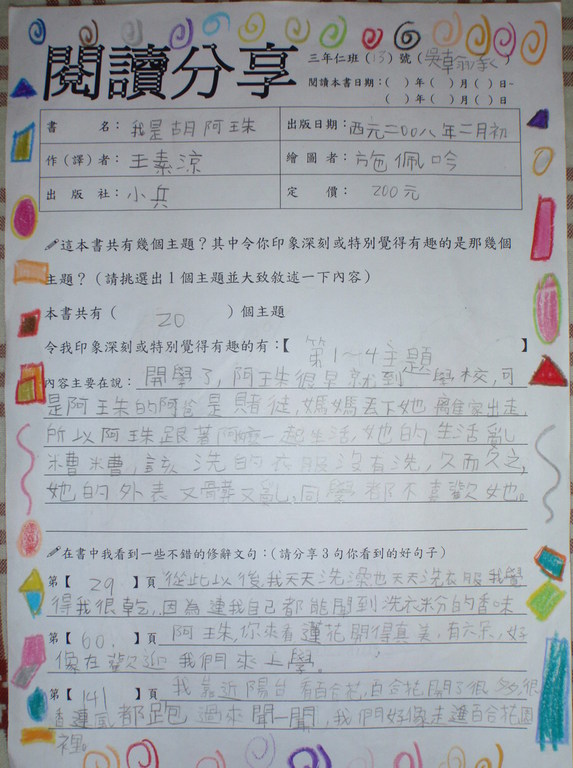 閱讀分享
三年仁班(13)號(吳)
閱讀本書日期:( )年( )月( )日-
( )年( )月( )日
書 名: 我是胡阿珠 出版日期: 西元二00八年二月初
作(譯)者: 王素涼 繪圖者: 施佩吟
出版社: 小兵 定 價: 200元
這本書共有幾個主題?其中令你印象深刻或特別覺得有趣的是那幾個
主題?(請挑選出1個主題並大致敘述一下內容)
本書共有( 20 )個主題
令我印象深刻或特別覺得有趣的有:【 第1~4主題 】
內容主要在說: 開學了,阿珠很早就到學校,可
是阿珠的阿爸是賭徒,媽媽丟下她離家出走,
所以阿珠跟著阿嬤一起生活,她的生活亂
糟糟,該洗的衣服沒有洗,久而久之,
她的外表又髒又亂,同學都不喜歡她。
在書中我看到一些不錯的修辭文句:(請分享3句你看到的好句子)
第【 29 】頁 從此以後,我天天洗澡也天天洗衣服我覺
得我很乾,因為連我自己都能聞到洗衣粉的香味
第【 60 】頁 阿珠,你來看蓮花開得真美,有六朵,好
像在歡迎我們來上學。
第【 141 】頁 我靠近陽台看百合花,百合花開了很多,很
香連風都跑過來聞一聞,我們好像走進百合花園
裡。